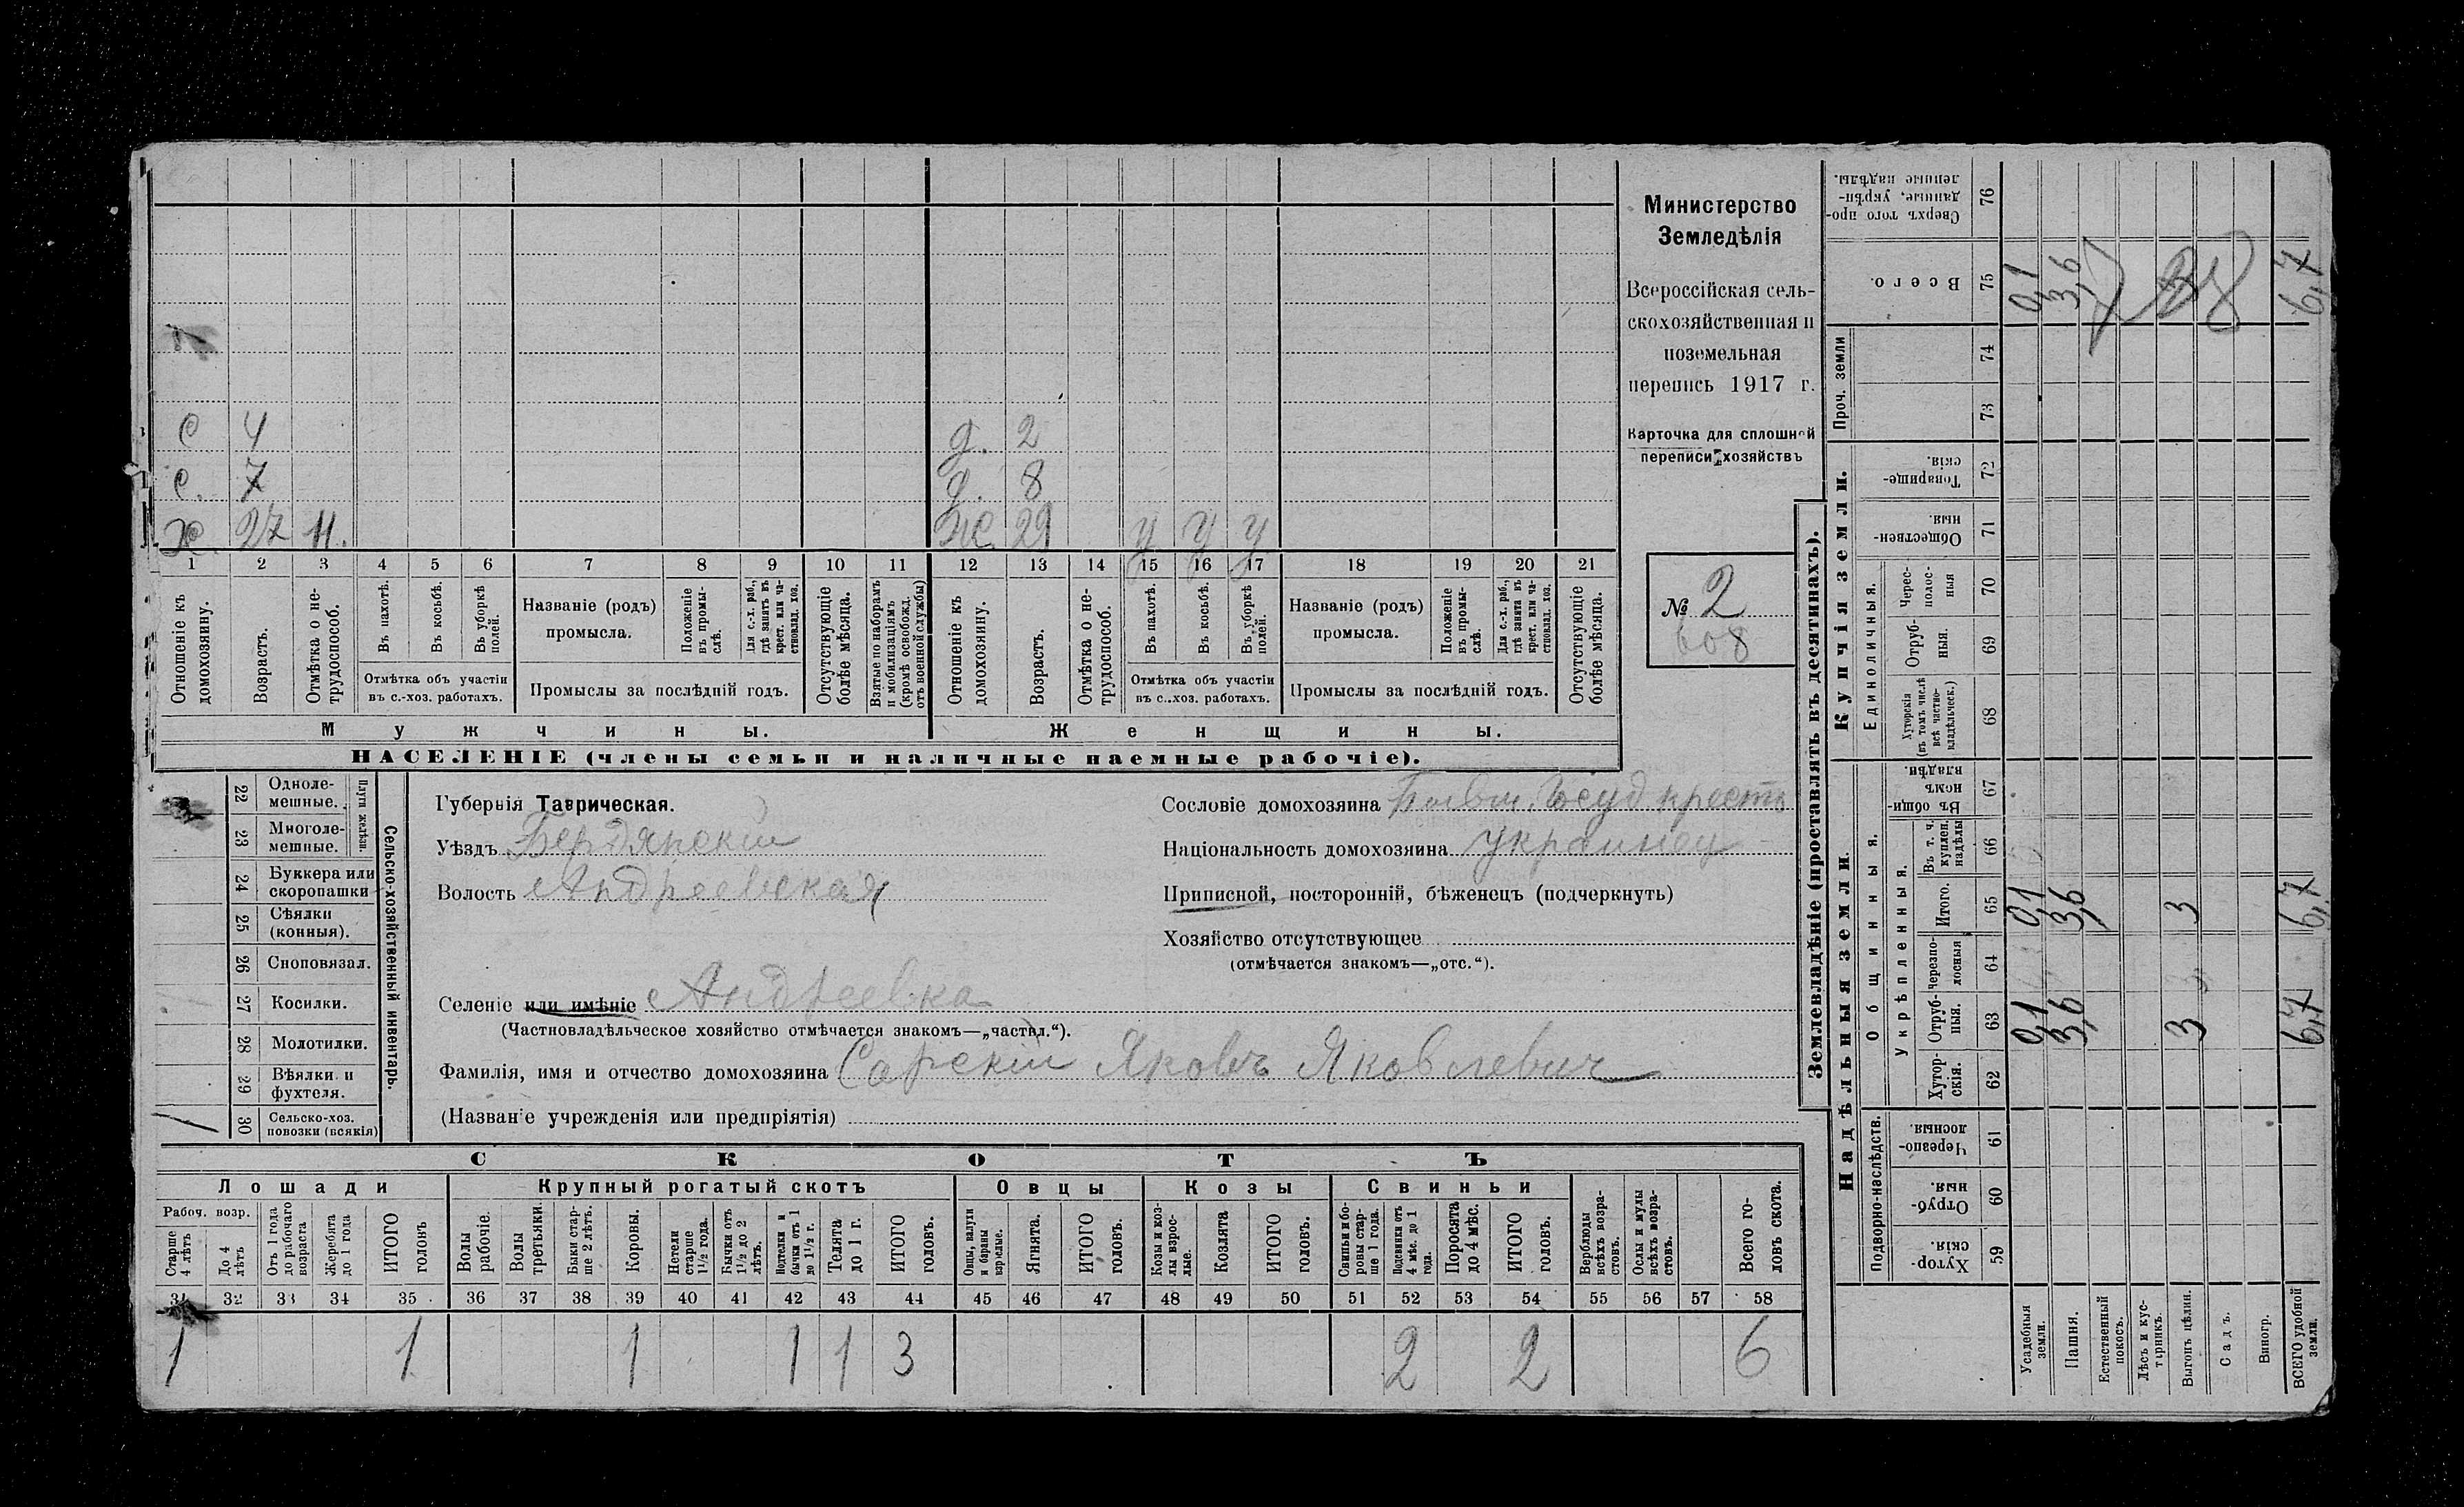 Министерство
Земледѣлія
Всероссійская сель-
скохозяйственная и
поземельная
перепись 1917 г.
Карточка для сплошной
переписи хозяйствъ
№ 2
608
С 4
д. 2
С. 7
д. 8
Х. 27 Н.
Ж. 29 У У У
1 2 3 4 5 6 7 8 9 10 11 12 13 14 15 16 17 18 19 20 21
Отношеніе къ домохозяину.
Возрастъ.
Отмѣтка о не-трудоспособ.
Въ пахотѣ.
Въ косьбѣ.
Въ уборкѣ полей.
Отмѣтка объ участіи
въ с.-хоз. работахъ.
Названіе (родъ)
промысла.
Положеніе въ промы-слѣ.
Для с.-х. раб., гдѣ занятъ въ крест. или ча-стновлад. хоз.
Промыслы за послѣдній годъ.
Отсутствующіе болѣе мѣсяца.
Взятые по наборамъ и мобилизаціямъ (кромѣ освобожд. отъ военной службы)
Отношеніе къ домохозяину.
Возрастъ.
Отмѣтка о не-трудоспособ.
Въ пахотѣ.
Въ косьбѣ.
Въ уборкѣ полей.
Отмѣтка объ участіи
въ с.-хоз. работахъ.
Названіе (родъ)
промысла.
Положеніе въ промы-слѣ.
Для с.-х. раб., гдѣ занята въ крест. или ча-стновлад. хоз.
Промыслы за послѣдній годъ.
Отсутствующіе болѣе мѣсяца.
Мужчины.
Женщины.
НАСЕЛЕНІЕ (члены семьи и наличные наемные рабочіе).
22 Одноле-мешные.
23 Многоле-мешные.
Плуги желѣзн.
24 Буккера или скоропашки
25 Сѣялки (конныя).
26 Сноповязал.
27 Косилки.
28 Молотилки.
29 Вѣялки и фухтеля.
1 30 Сельско-хоз. повозки (всякія)
Сельско-хозяйственный инвентарь.
Губернія Таврическая.
Уѣздъ Бердянскій
Волость Андреевская
Селеніе или имѣніе Андреевка
(Частновладѣльческое хозяйство отмѣчается знакомъ—„частвл.“).
Фамилія, имя и отчество домохозяина Сарскій Яковъ Яковлевич
(Названіе учрежденія или предпріятія)
Сословіе домохозяина
Національность домохозяина украинец
Приписной, посторонній, бѣженецъ (подчеркнуть)
Хозяйство отсутствующее
(отмѣчается знакомъ—„отс.“).
СКОТЪ
Лошади
Крупный рогатый скотъ
Овцы
Козы
Свиньи
Рабоч. возр.
Старше 4 лѣтъ
До 4 лѣтъ
Отъ 1 года до рабочаго возраста
Жеребята до 1 года
ИТОГО головъ
Волы рабочіе.
Волы третьяки.
Быки стар-ше 2 лѣтъ.
Коровы.
Нетели старше 1½ года.
Бычки отъ 1½ до 2 лѣтъ.
Подтелки и бычки отъ 1 до 1½ г.
Телята до 1 г.
ИТОГО головъ.
Овцы, валухи и бараны взрослые.
Ягнята.
ИТОГО головъ.
Козы и коз-лы взрос-лые.
Козлята
ИТОГО головъ.
Свиньи и бо-ровы стар-ше 1 года.
Подсвинки отъ 4 мѣс. до 1 года.
Поросята до 4 мѣс.
ИТОГО головъ.
Верблюды всѣхъ возра-стовъ.
Ослы и мулы всѣхъ возра-стовъ.
Всего го-ловъ скота.
31 32 33 34 35 36 37 38 39 40 41 42 43 44 45 46 47 48 49 50 51 52 53 54 55 56 57 58
1 1 1 1 1 3 2 2 6
Землевладѣніе (проставлять въ десятинахъ).
Надѣльныя земли.
Купчія земли.
Проч. земли
Подворно-наслѣдств.
Общинныя.
Укрѣпленныя.
Единоличныя.
Хутор-скія. 59
Отруб-ныя. 60
Черезпо-лосныя 61
Хутор-скія. 62
Отруб-ныя. 63 0,1 3,6 3 6,7
Черезпо-лосныя 64
Итого. 65 0,1 3,6 3 6,7
Въ т. ч. куплен. надѣлы 66
Въ общи-номъ владѣн. 67
Хуторскія (въ томъ числѣ всѣ частно-владѣльческ.) 68
Отруб-ныя. 69
Черес-полос-ныя 70
Обществен-ныя 71
Товарище-скія. 72
73
74
Всего. 75 0,1 3,6 6,7
Сверхъ того про-данные, укрѣп-ленные надѣлы. 76
Усадебныя земли.
Пашня.
Естественный покосъ.
Лѣсъ и кус-тарникъ.
Выгонъ цѣлин.
Садъ.
Виногр.
ВСЕГО удобной земли.